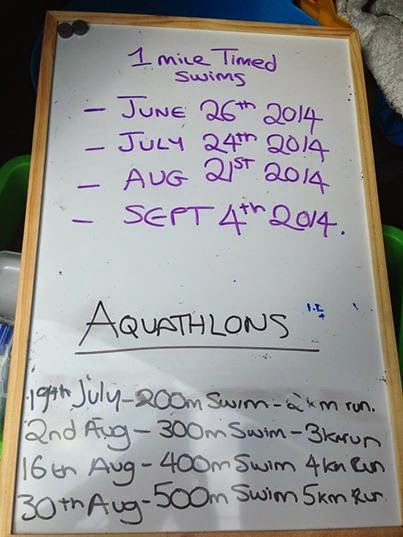 1 mile Timed
Swims
- JUNE 26th 2014
- JULY 24th 2014
- AUG 21ST 2014
- SEPT 4th 2014.
AQUATHLONS
19th July - 200m Swim - 2km run.
2nd Aug - 300m Swim - 3km run
16th Aug - 400m Swim 4km Run
30th Aug - 500m Swim 5km Run